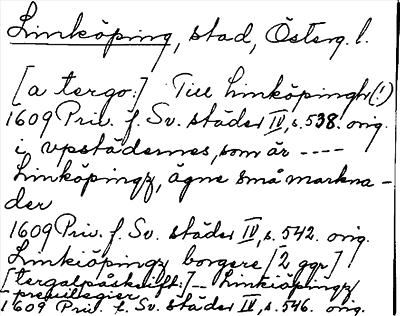 Linköping, stad, Österg. l.
[a tergo:] Till Linköpingh (!)
1609 Priv. f. Sv. städer IV, s. 538. orig.
i vpstädernes, som är ----
Linköpingz, ägne små markna-
der
1609 Priv. f. Sv. städer IV, s. 542. orig.
Linkiöpingz borgere [2 ggr]
[tergalpåskrift:] - Linköpingz
previlegier
1609 Priv. f. Sv. städer IV, s. 546. orig.